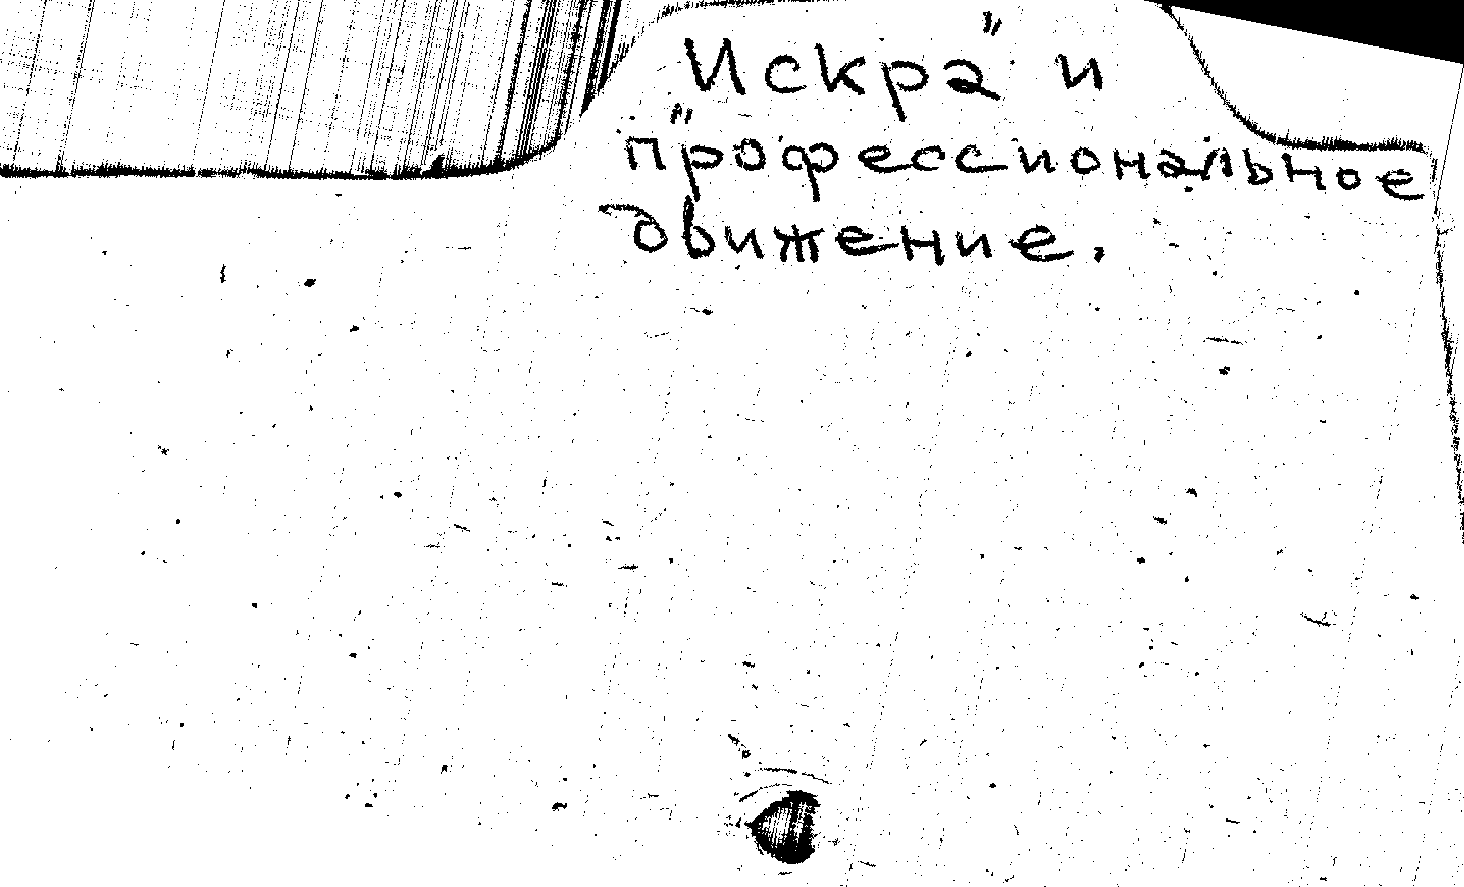 "Искра" и
профессиональное
движение.